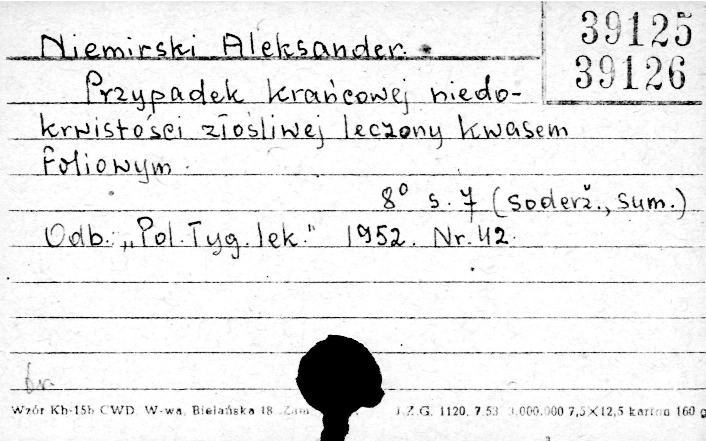 39125
39126
Niemirski Aleksander.
Przypadek krańcowej niedo-
krwistości złośliwej leczony kwasem
foliowym.
8° s. 7 (soderž., sum.)
Odb. "Pol. Tyg. lek." 1952. Nr. 42.
br.
Wzór Kh-15b CWD W-wa, Bielańska 18 Zam J.Z.G. 1120. 7.53 3.000.000 7,5×12,5 karton 160 g